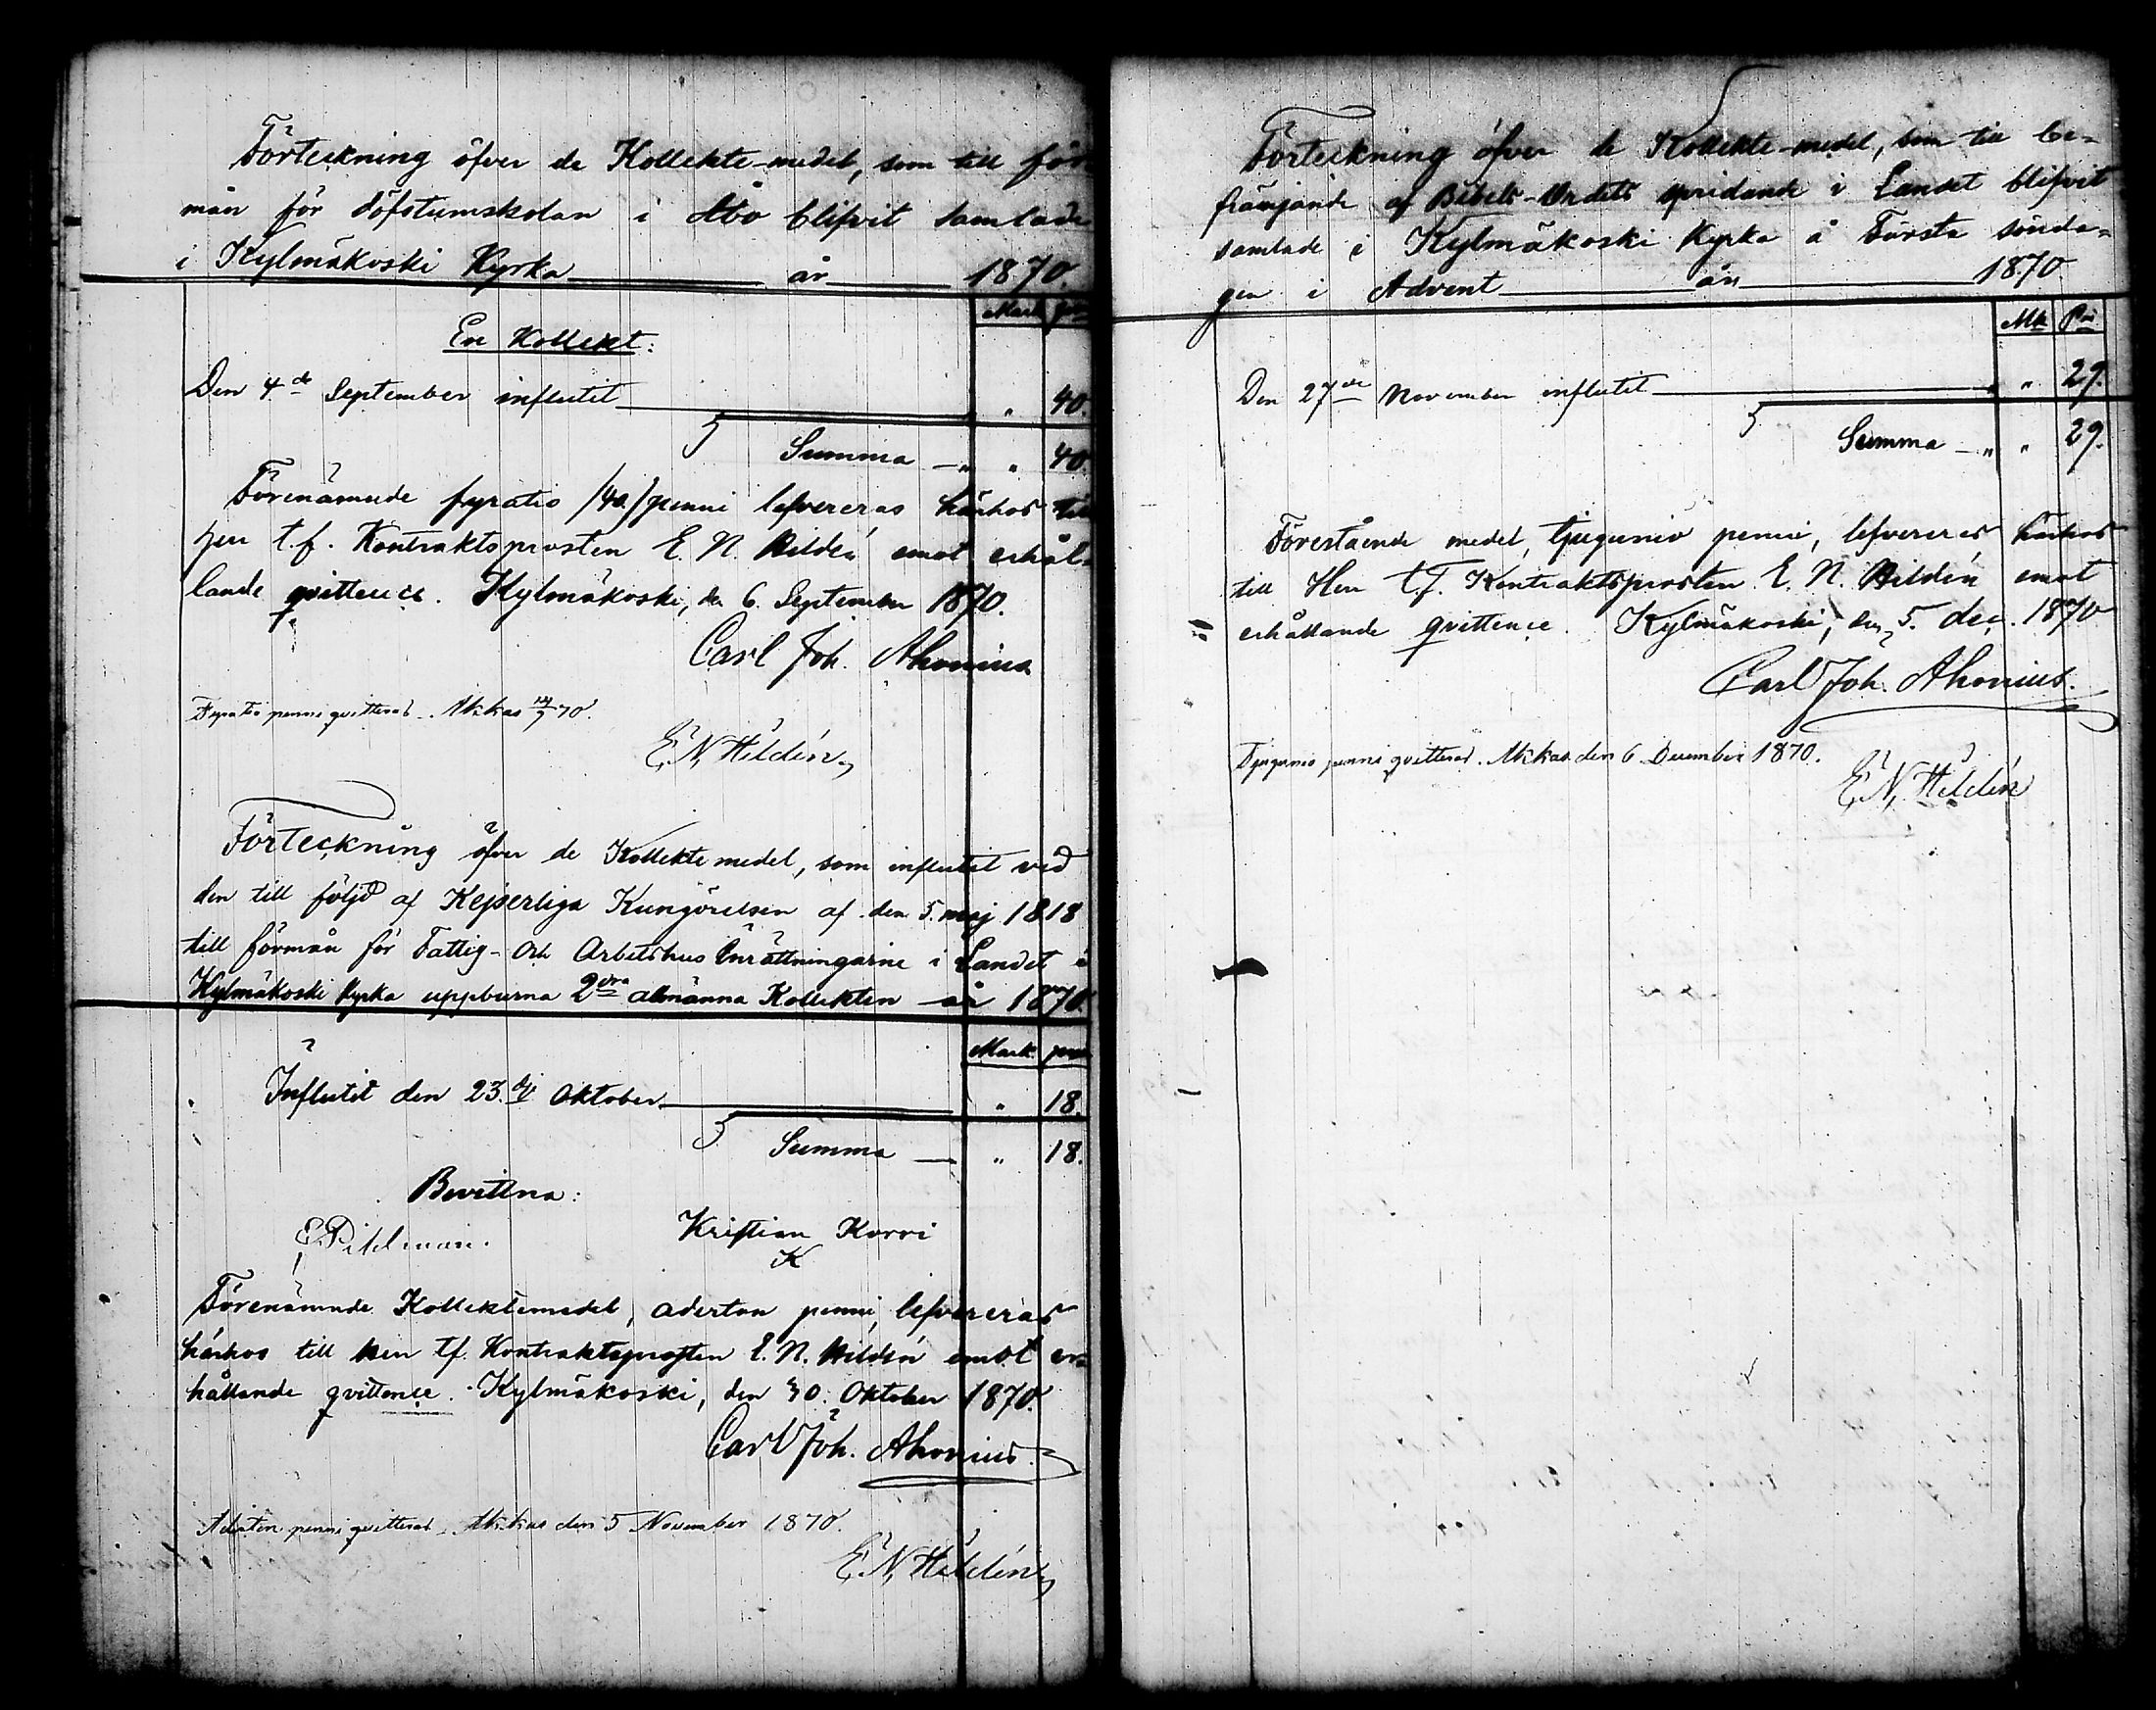 Förteckning öfver de Kollekte-medel, som till för
mån för döfstumskolan i Åbo blifvit samlade
i Kylmäkoski Kyrka år 1870.
Mark pni
En Kollekt:
Den 4de September influtit " 40.
Summa " " 40.
Förenämnde fyratio /40/ penni lefvereras härhos till
herr t.f. Kontraktsprosten E. N. Hildén emot erhål-
lande qvittence. Kylmäkoski, den 6. September 1870.
Carl Joh. Ahonius
Fyratio penni qvitteras. Akkas 70.
E. N. Hildén
Förteckning öfver de Kollektemedel, som influtit vid
den till följd af Kejserliga Kungörelsen af den 5. maj 1818
till förmån för Fattig- och Arbetshus Inrättningarne i Landet i
Kylmäkoski Kyrka uppburna 2dra allmänna Kollekten år 1870.
Mark pni
Influtit den 23.dj Oktober " 18.
Summa " 18.
Bevittna:
E Pihlman. Kristian Korvi
K
Förenämnde Kollektemedel, aderton penni, lefvereras
härhos till Herr tf. Kontraktsprosten E. N. Hildén emot er-
hållande qvittence. Kylmäkoski, den 30. Oktober 1870.
Carl Joh. Ahonius.
Aderton penni qvitteras. Akkas den 5 November 1870.
E. N. Hildén
Förteckning öfver de Kollekte-medel, som till be-
främjande af Bibels-Ordets spridande i Landet blifvit
samlade i Kylmäkoski Kyrka å Första sönda-
gen i Advent år 1870
Mk Pni
Den 27de November influtit " 29.
Summa " " 29.
Förestående medel, tjugunio penni, lefvereras härhos
till Herr t.f. Kontraktsprosten E. N. Hildén emot
erhållande qvittence. Kylmäkoski, den 5. dec. 1870
Carl Joh. Ahonius.
Tjugunio penni qvitteras. Akkas den 6 December 1870.
E. N. Hildén